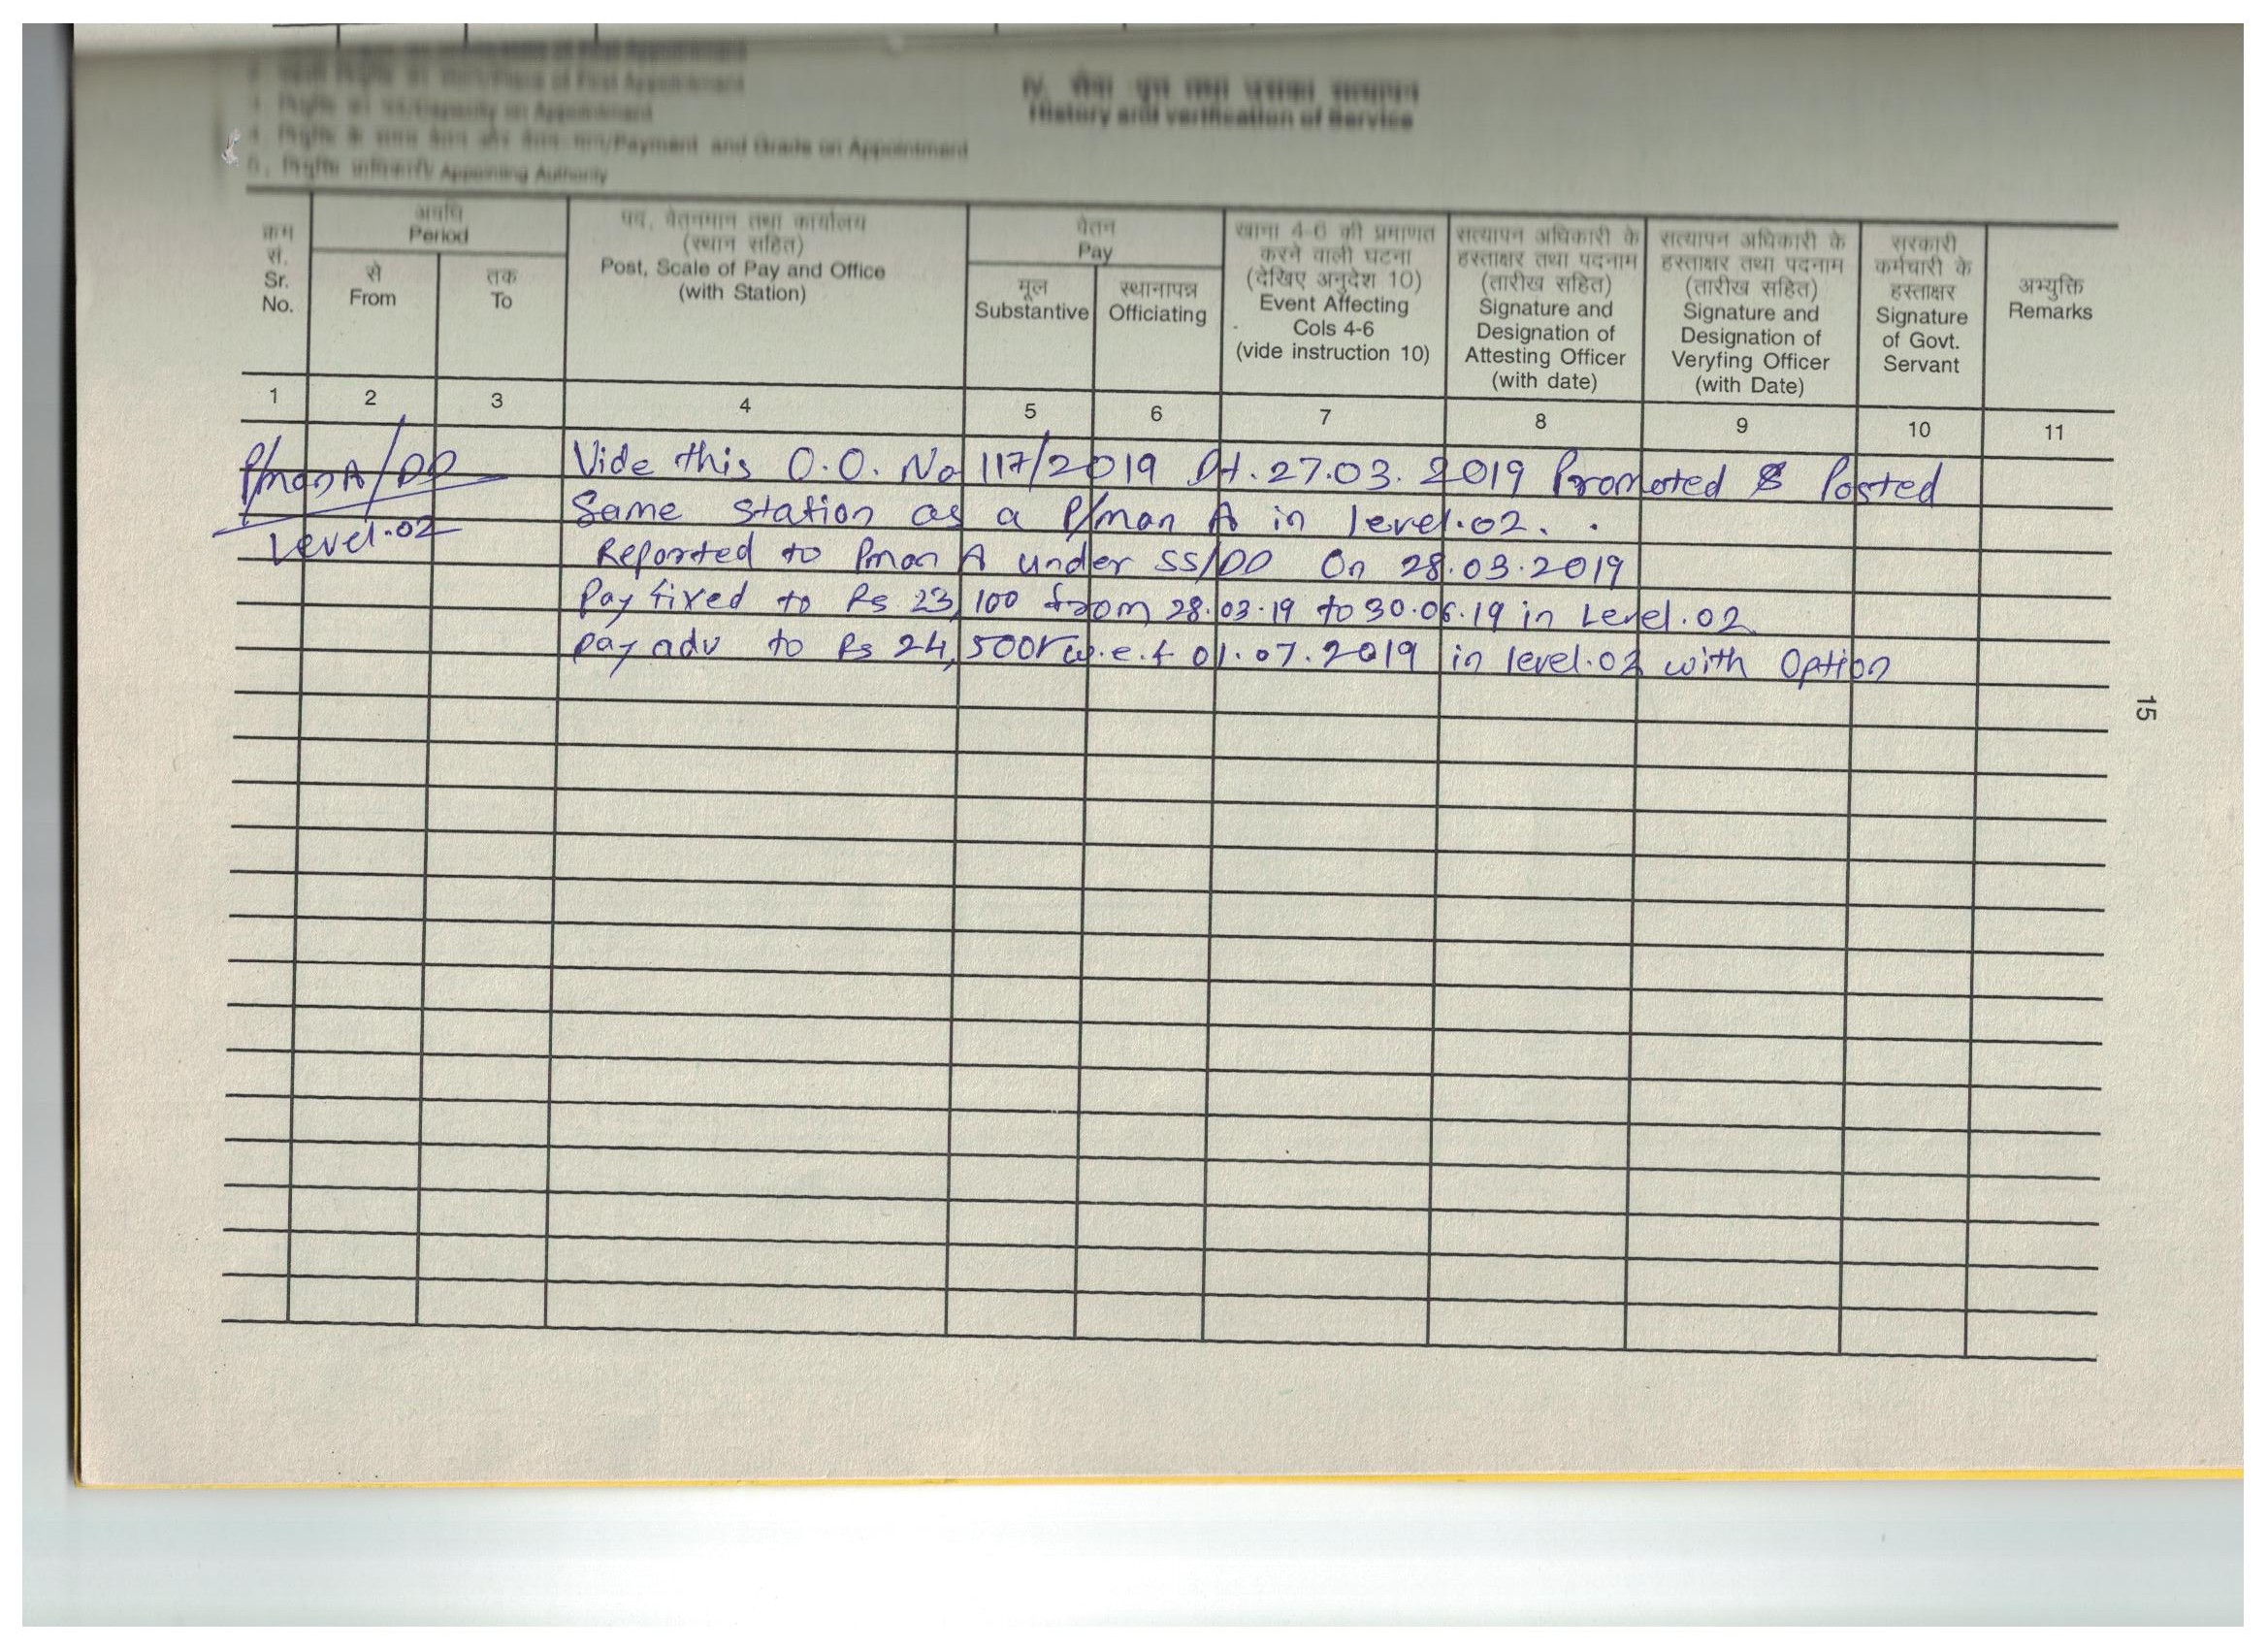 Place of First Appointment
Capacity on Appointment
Payment and Grade on Appointment
Appointing Authority
History and verification of Service
क्रम
सं.
Sr.
No.
अवधि
Period
से
From
तक
To
पद, वेतनमान तथा कार्यालय
(स्थान सहित)
Post, Scale of Pay and Office
(with Station)
वेतन
Pay
मूल
Substantive
स्थानापन्न
Officiating
खाना 4-6 की प्रमाणत
करने वाली घटना
(देखिए अनुदेश 10)
Event Affecting
Cols 4-6
(vide instruction 10)
सत्यापन अधिकारी के
हस्ताक्षर तथा पदनाम
(तारीख सहित)
Signature and
Designation of
Attesting Officer
(with date)
सत्यापन अधिकारी के
हस्ताक्षर तथा पदनाम
(तारीख सहित)
Signature and
Designation of
Veryfing Officer
(with Date)
सरकारी
कर्मचारी के
हस्ताक्षर
Signature
of Govt.
Servant
अभ्युक्ति
Remarks
1 2 3 4 5 6 7 8 9 10 11
P/man A/DD
Level.02
Vide this O.O. No 117/2019 Dt. 27.03.2019 Promoted & Posted
Same station as a P/man A in level.02.
Reported to Pman A under SS/DD On 28.03.2019
Pay fixed to Rs 23,100 from 28.03.19 to 30.06.19 in Level.02
pay adv to Rs 24,500/ w.e.f 01.07.2019 in level.02 with Option
15